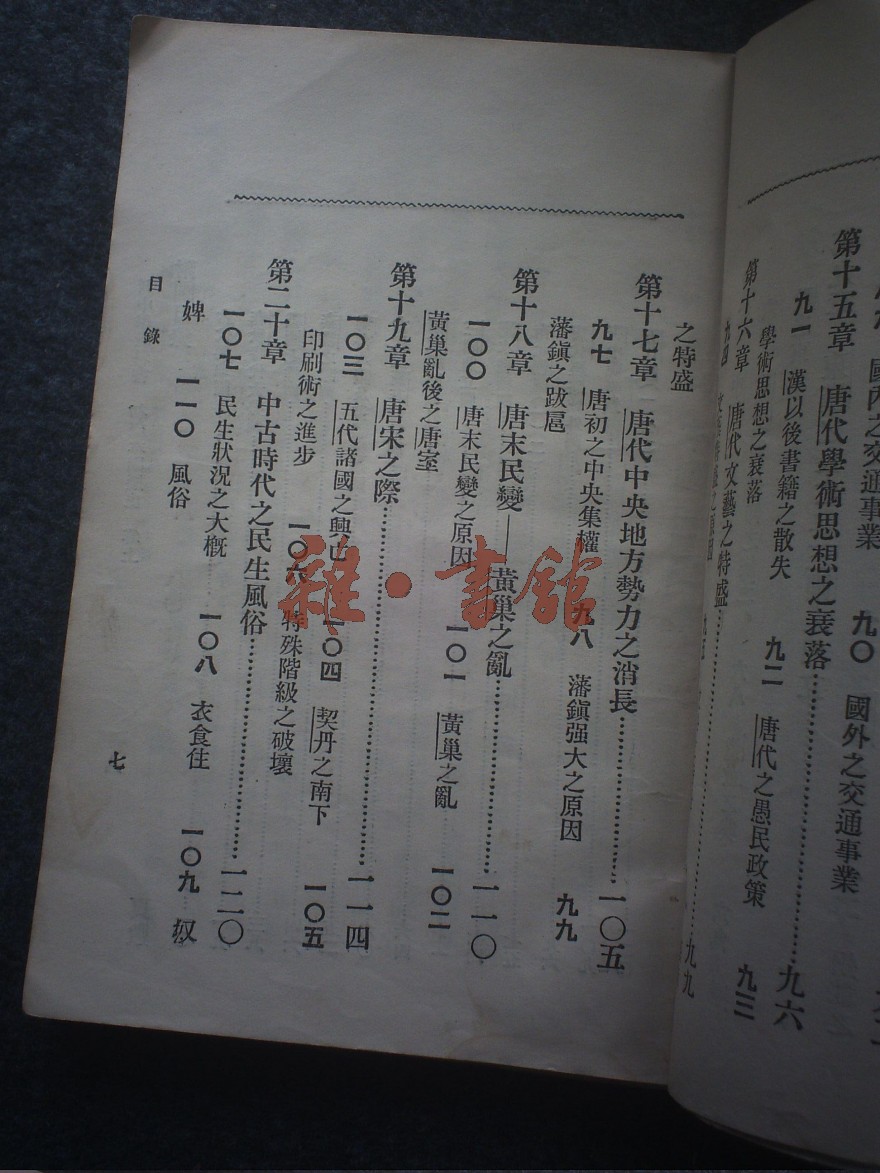 國內之交通事業 九〇 國外之交通事業
第十五章 唐代學術思想之衰落……九六
九一 漢以後書籍之散失 九二 唐代之愚民政策 九三
學術思想之衰落
第十六章 唐代文藝之特盛……九九
九四
之特盛
第十七章 唐代中央地方勢力之消長……一〇五
九七 唐初之中央集權 九八 藩鎮强大之原因 九九
藩鎮之跋扈
第十八章 唐末民變——黃巢之亂……一一〇
一〇〇 唐末民變之原因 一〇一 黃巢之亂 一〇二
黃巢亂後之唐室
第十九章 唐宋之際……一一四
一〇三 五代諸國之興亡 一〇四 契丹之南下 一〇五
印刷術之進步 一〇六 特殊階級之破壞
第二十章 中古時代之民生風俗……一二〇
一〇七 民生狀況之大概 一〇八 衣食住 一〇九 奴
婢 一一〇 風俗
目錄
七
雜·書館